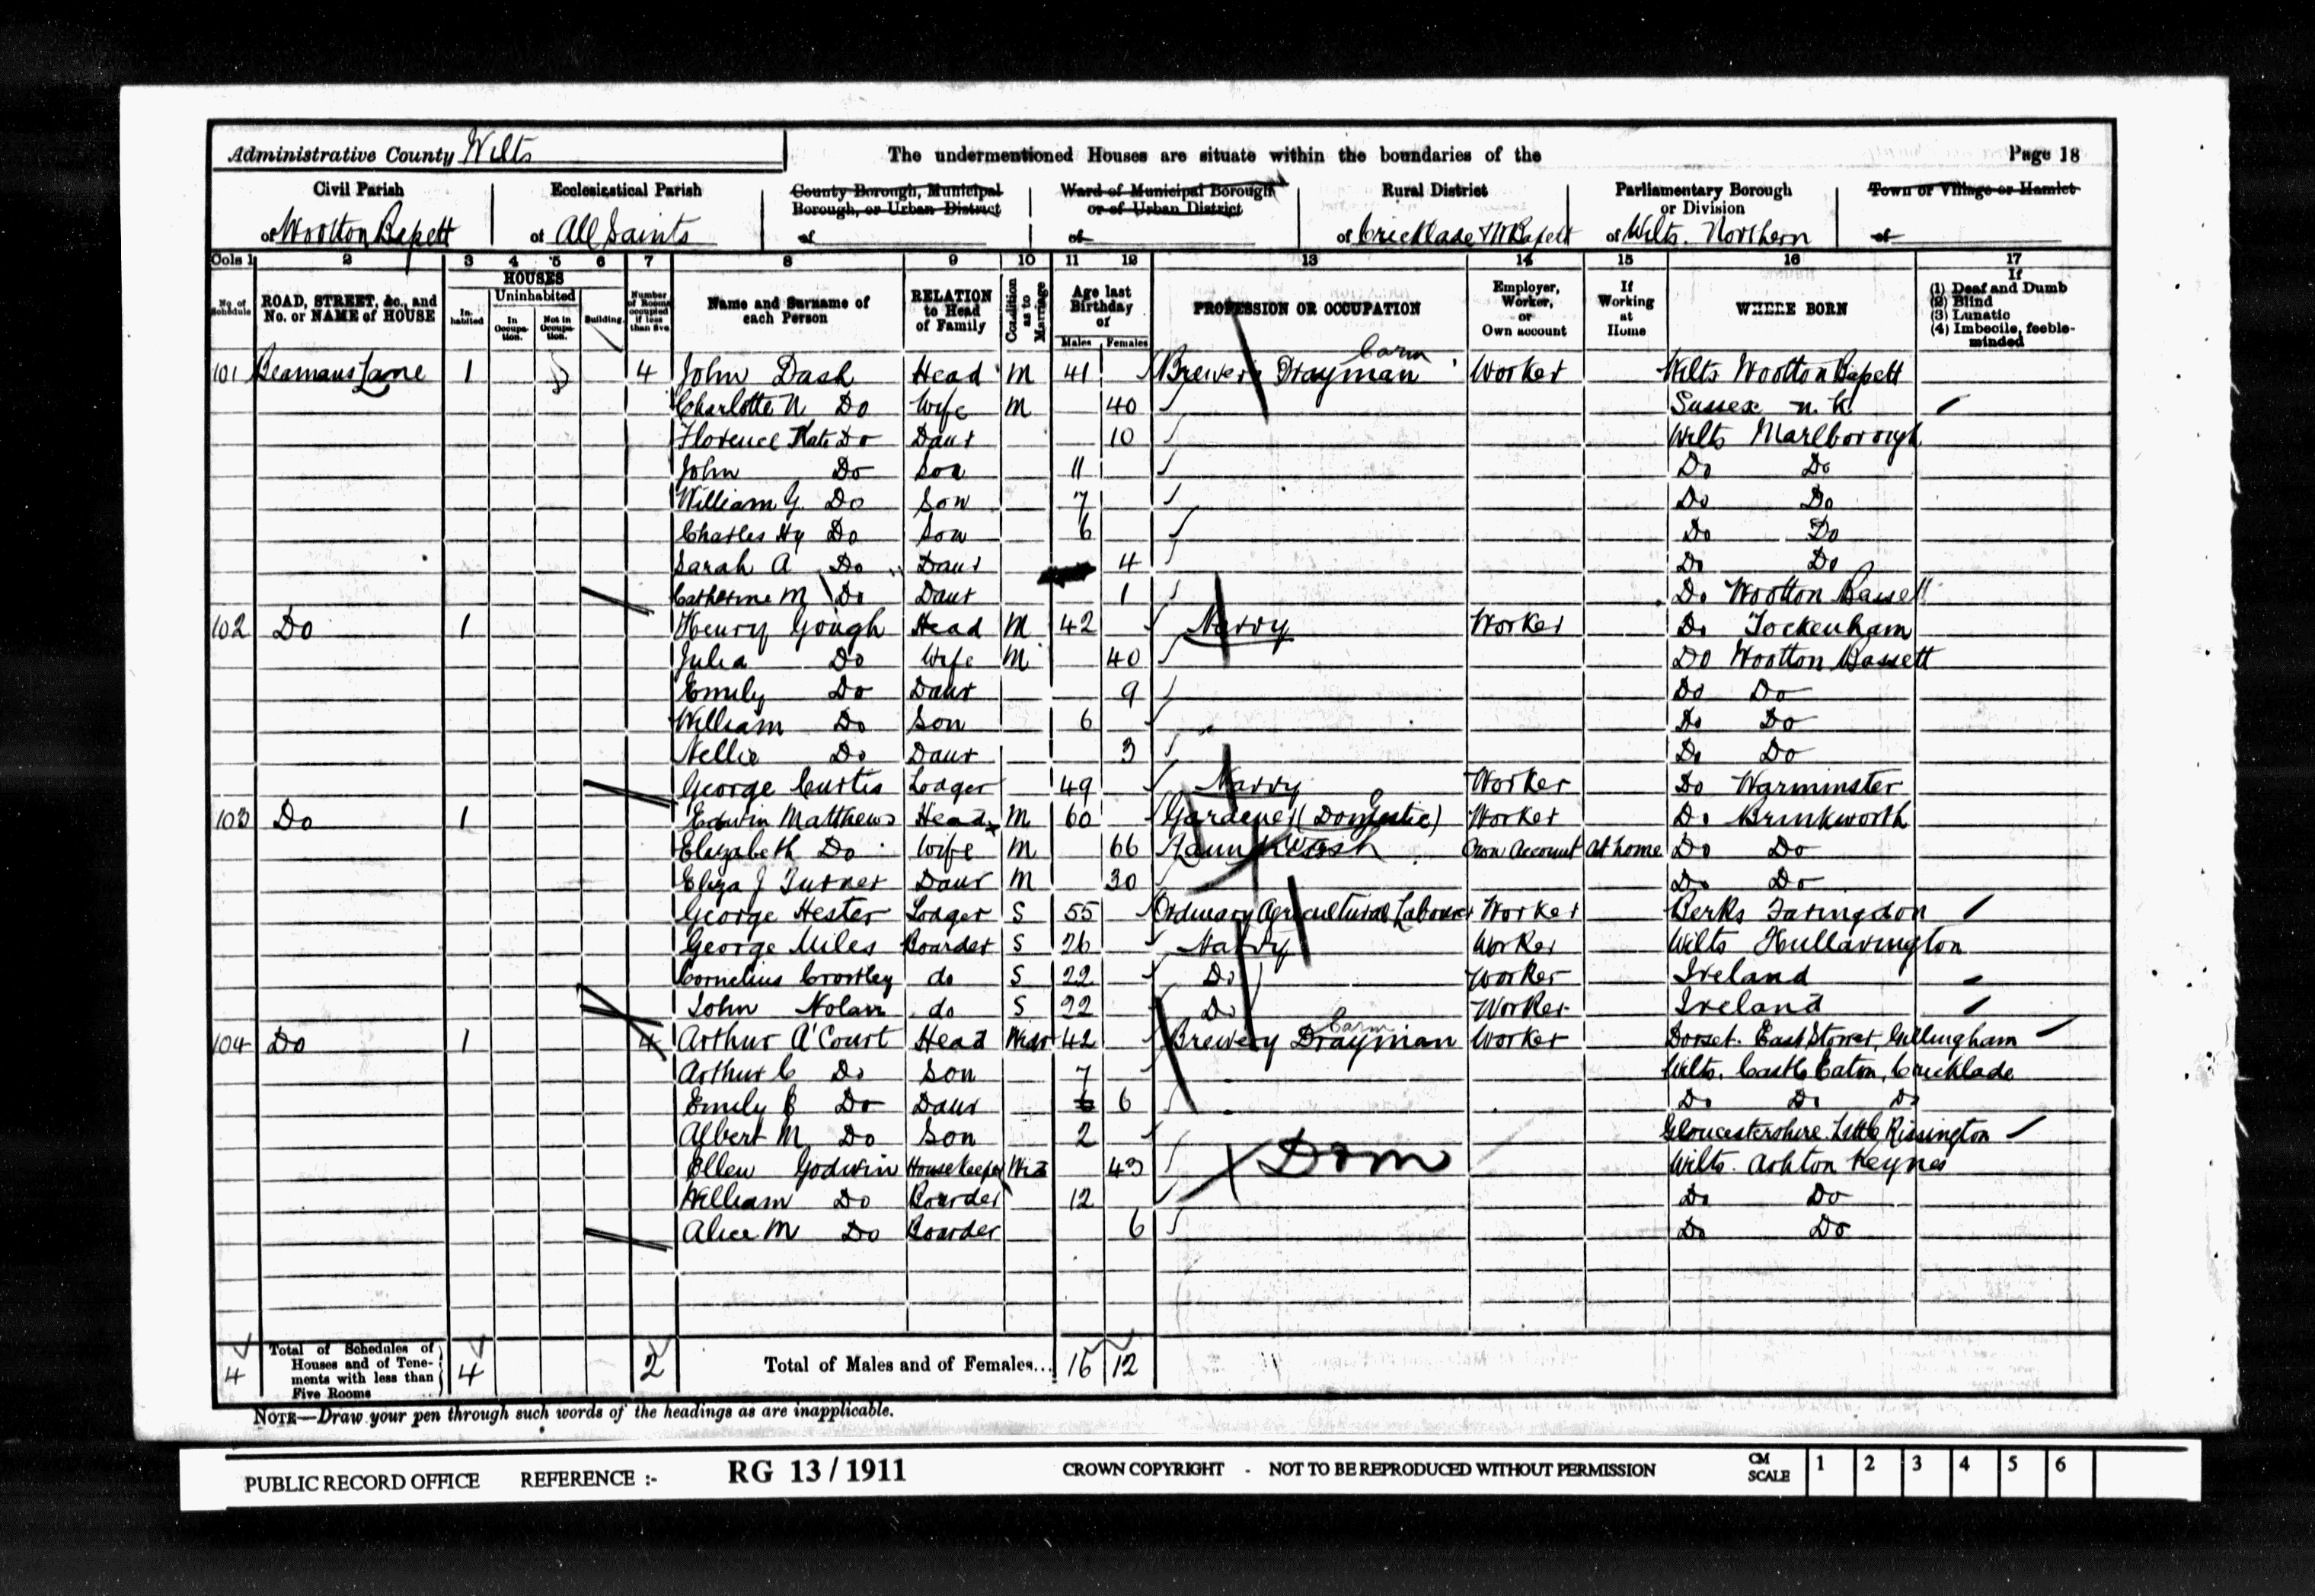 Administrative County Wilts
The undermentioned Houses are situate within the boundaries of the
Page 18
Civil Parish
of Wootton Bassett
Ecclesiastical Parish
of All Saints
County Borough, Municipal Borough, or Urban District
of
Ward of Municipal Borough or of Urban District
of
Rural District
of Cricklade & W Bassett
Parliamentary Borough or Division
of Wilts. Northern
Town or Village or Hamlet
of
Cols 1 2 3 4 5 6 7 8 9 10 11 12 13 14 15 16 17
No. of Schedule
ROAD, STREET, &c., and No. or NAME of HOUSE
HOUSES
Inhabited
Uninhabited
In Occupation.
Not in Occupation.
Building.
Number of Rooms occupied if less than five
Name and Surname of each Person
RELATION to Head of Family
Condition as to Marriage
Age last Birthday of
Males Females
PROFESSION OR OCCUPATION
Employer, Worker, or Own account
If Working at Home
WHERE BORN
If
(1) Deaf and Dumb
(2) Blind
(3) Lunatic
(4) Imbecile, feeble-minded
Carm
101 Beamans Lane 1 4 John Dash Head M 41 Brewery Drayman Worker Wilts Wootton Bassett
Charlotte N Do Wife M 40 Sussex n. k.
Florence Kate Do Daur 10 Wilts Marlborough
John Do Son 11 Do Do
William G. Do Son 7 Do Do
Charles Hy Do Son 6 Do Do
Sarah A Do Daur 4 Do Do
Catherine M Do Daur 1 Do Wootton Bassett
102 Do 1 Henry Gough Head M 42 Navvy Worker Do Tockenham
Julia Do Wife M 40 Do Wootton Bassett
Emily Do Daur 9 Do Do
William Do Son 6 Do Do
Nellie Do Daur 3 Do Do
George Curtis Lodger 49 Navvy Worker Do Warminster
103 Do 1 Edwin Matthews Head M 60 Gardener (Domestic) Worker Do Brinkworth
Elizabeth Do Wife M 66 Own Account At home Do Do
Eliza J Turner Daur M 30 Do Do
George Hester Lodger S 55 Ordinary Agricultural Labourer Worker Berks Faringdon
George Miles Boarder S 26 Navvy Worker Wilts Hullavington
Cornelius do S 22 Do Worker Ireland
John Nolan do S 22 Do Worker Ireland
Carm
104 Do 1 4 Arthur A'Court Head Widr 42 Brewery Drayman Worker Dorset. East Stower, Gillingham
Arthur C Do Son 7 Wilts. Castle Eaton, Cricklade
Emily B Do Daur 6 Do Do Do
Albert M. Do Son 2 Gloucestershire. Little Rissington
Ellen Godwin Housekeeper Wid 43 Dom Wilts. Ashton Keynes
William Do Boarder 12 Do Do
Alice M Do Boarder 6 Do Do
4 Total of Schedules of Houses and of Tenements with less than Five Rooms 4 2 Total of Males and of Females... 16 12
NOTE—Draw your pen through such words of the headings as are inapplicable.
PUBLIC RECORD OFFICE REFERENCE :- RG 13 / 1911 CROWN COPYRIGHT - NOT TO BE REPRODUCED WITHOUT PERMISSION CM SCALE 1 2 3 4 5 6